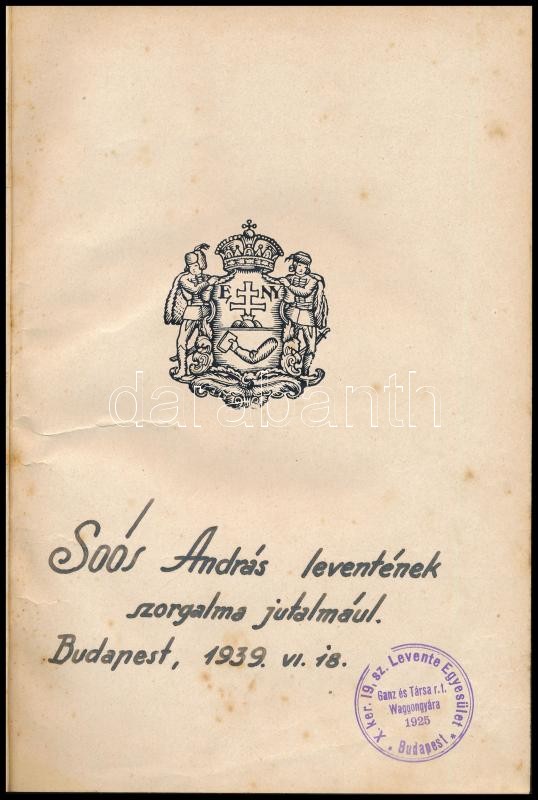 E NY
darabanth
Soós András leventének
szorgalma jutalmául.
Budapest, 1939. VI. 18.
X. ker. 19. sz. Levente Egyesület
Ganz és Társa r.t.
Waggongyára
1925
* Budapest *